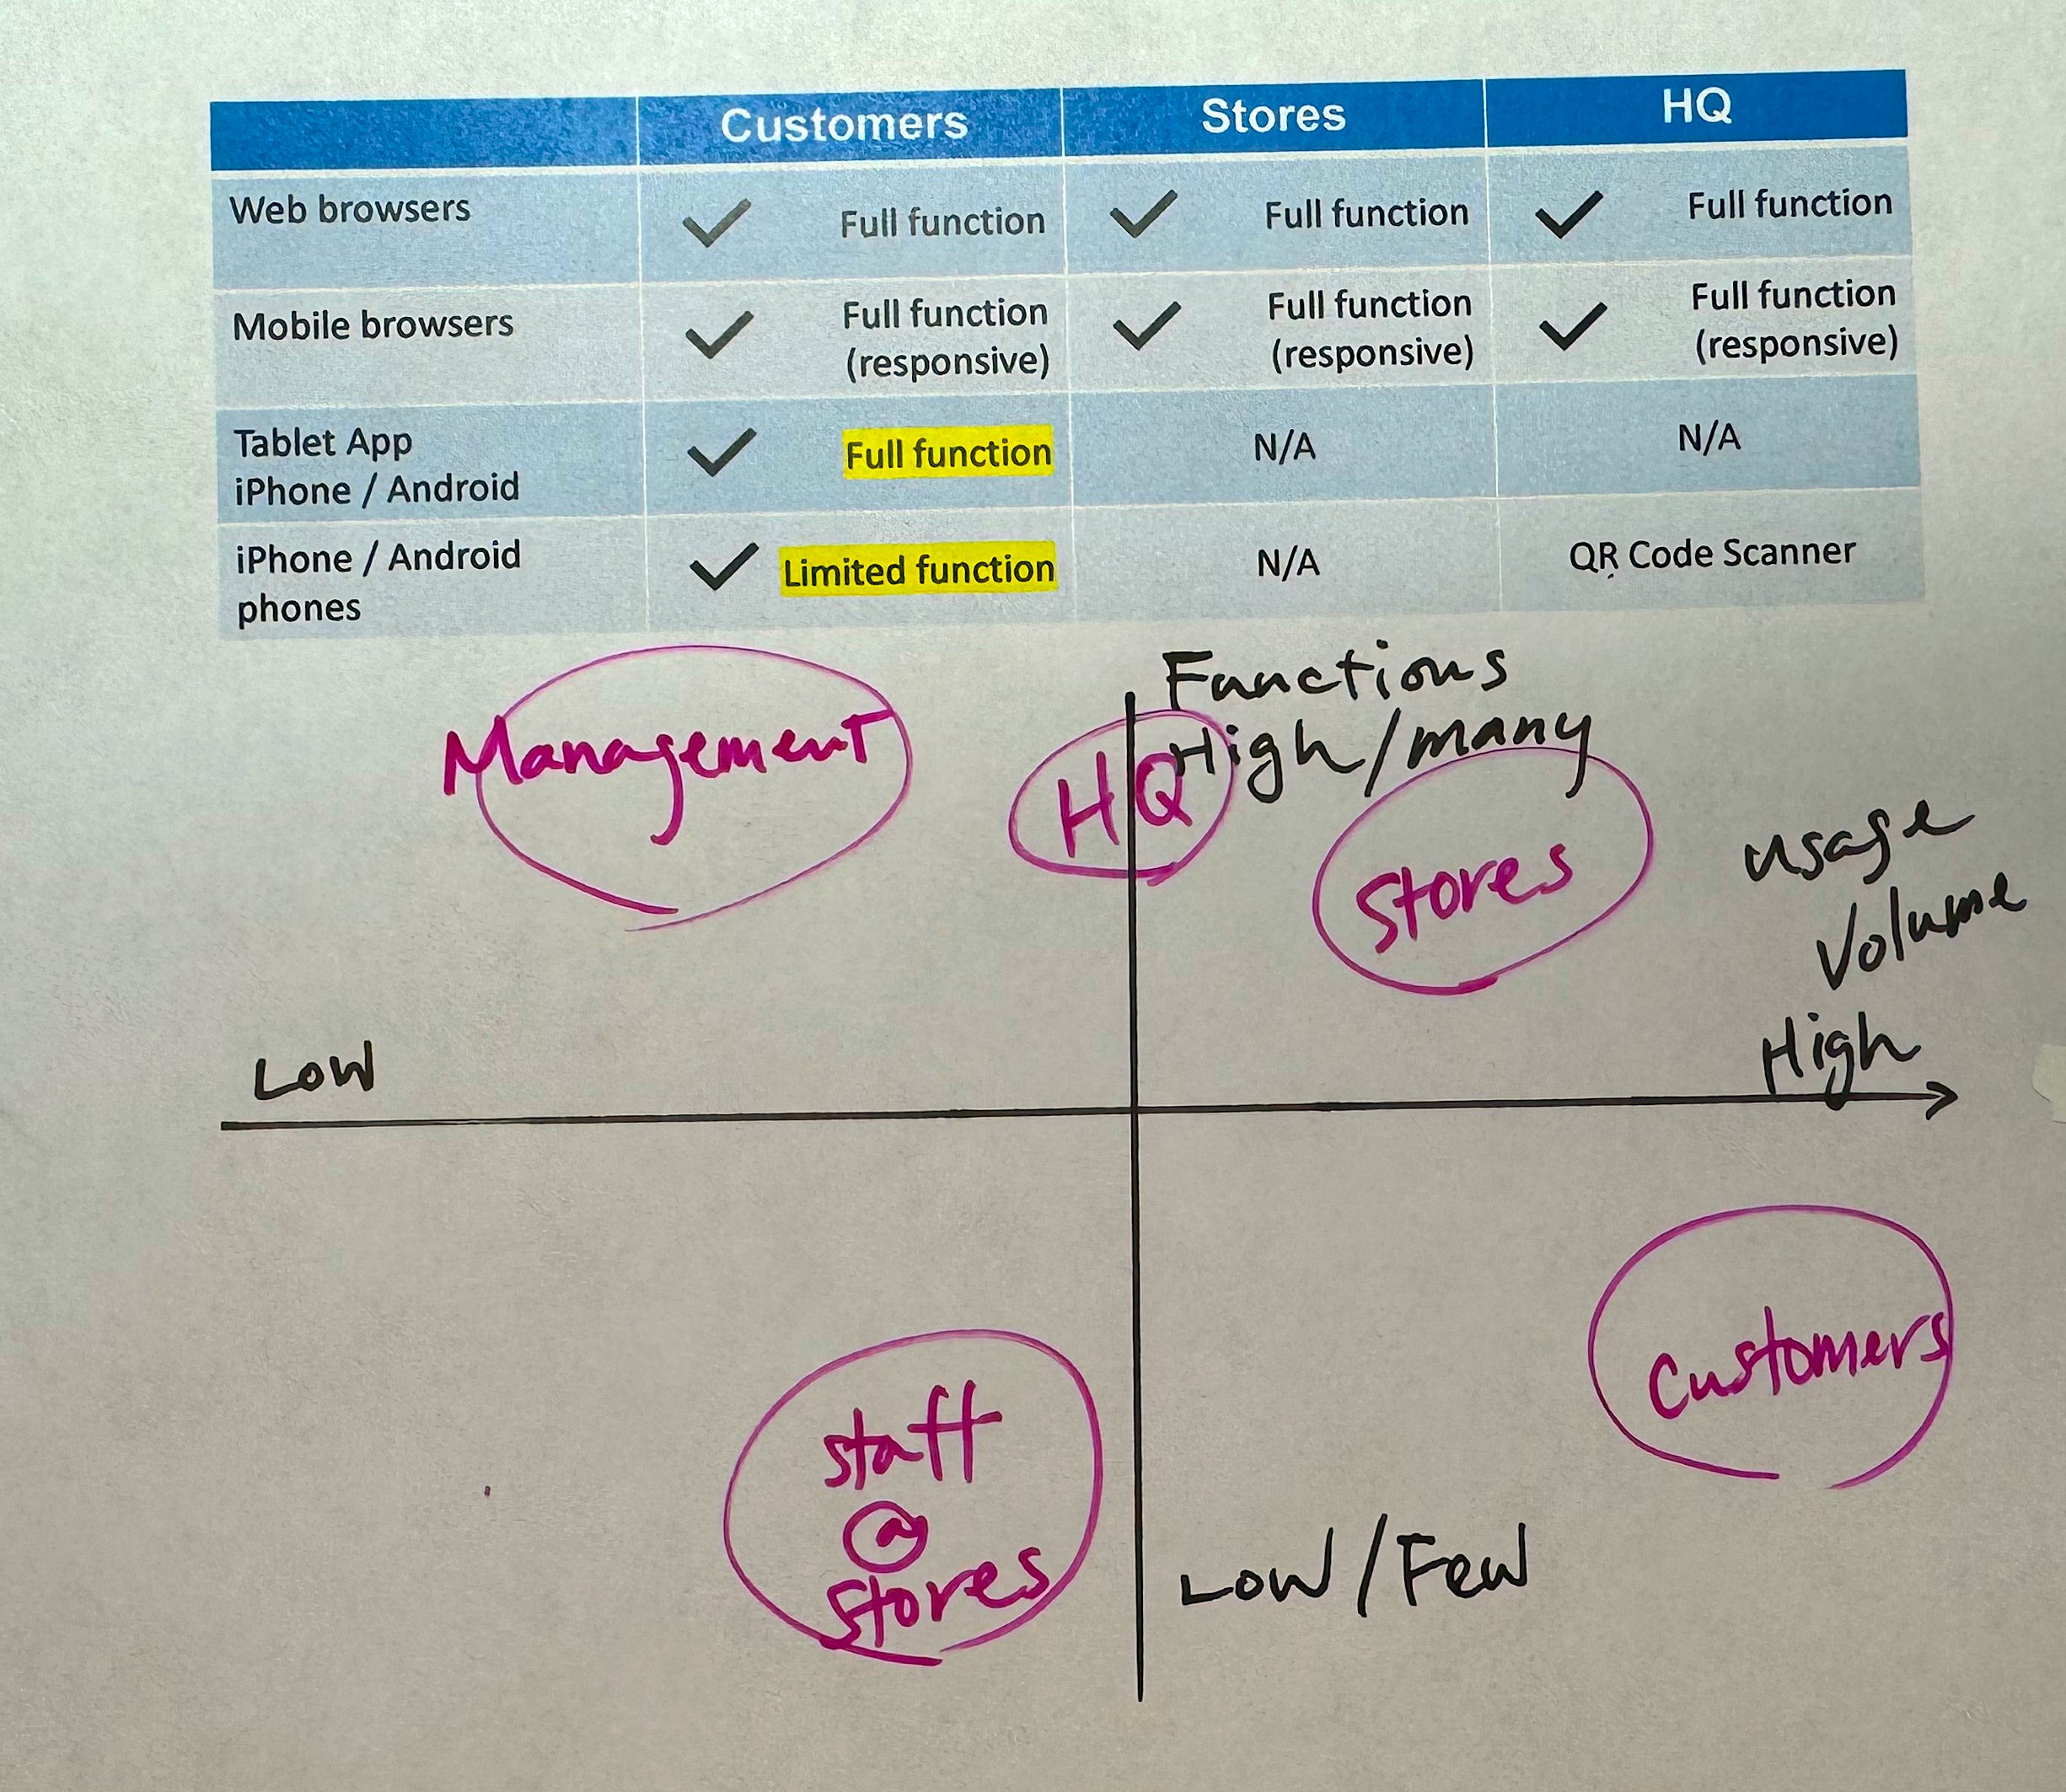 Customers Stores HQ
Web browsers Full function Full function Full function
Mobile browsers Full function (responsive) Full function (responsive) Full function (responsive)
Tablet App
iPhone / Android Full function N/A N/A
iPhone / Android
phones Limited function N/A QR Code Scanner
Functions
High/many
Management
HQ
Stores
usage
Volume
High
Low
Customers
staff
@
stores
Low/Few